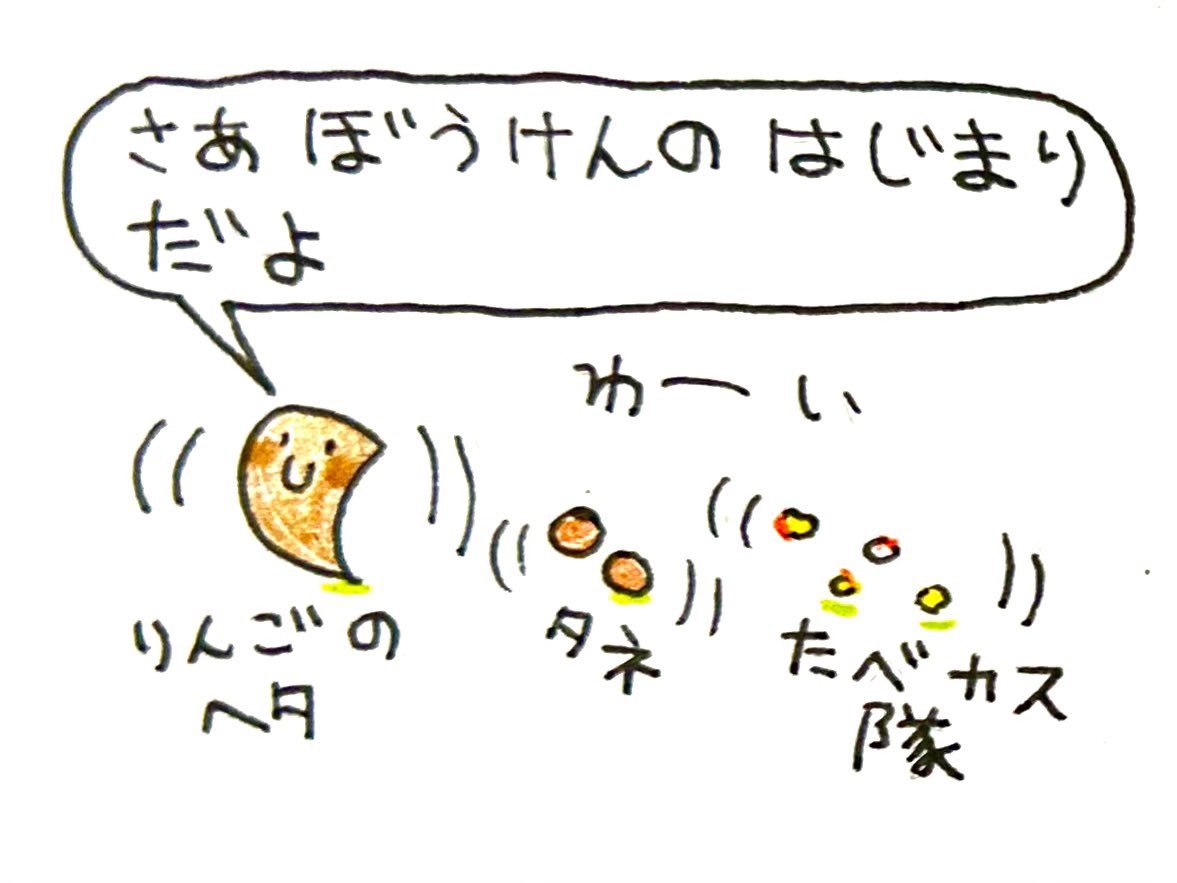 さあ ぼうけんの はじまり
だよ
わーい
りんごの
ヘタ
タネ
たべカス
隊